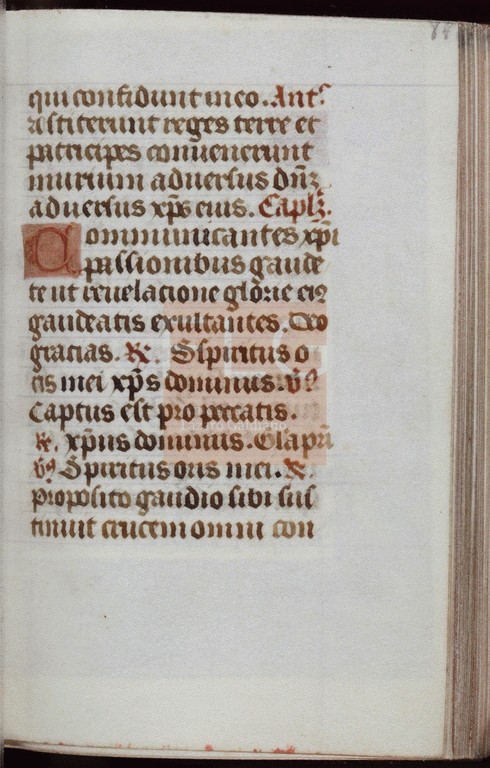 84
qui confidunt in eo. Antꝰ
Astiterunt reges terre et
pͥncipes conuenerunt
in unum aduersus dn̄ꝫ
aduersus xp̄s eius. Caplꝫ.
Communicantes xp̄i
passionibus gaude
te ut reuelacione glōrie eiꝰ
gaudeatis exultantes. Deo
gracias. ℟. Spiritus o
ris mei xp̄s dominus. ℣ꝰ
Captus est pro peccatis.
℟. xp̄us dominus. Gla pr̄i
℣ꝰ Spiritus oris mei. ℟.
Proposito gaudio sibi sus
tinuit crucem omni con
Lázaro Galdiano